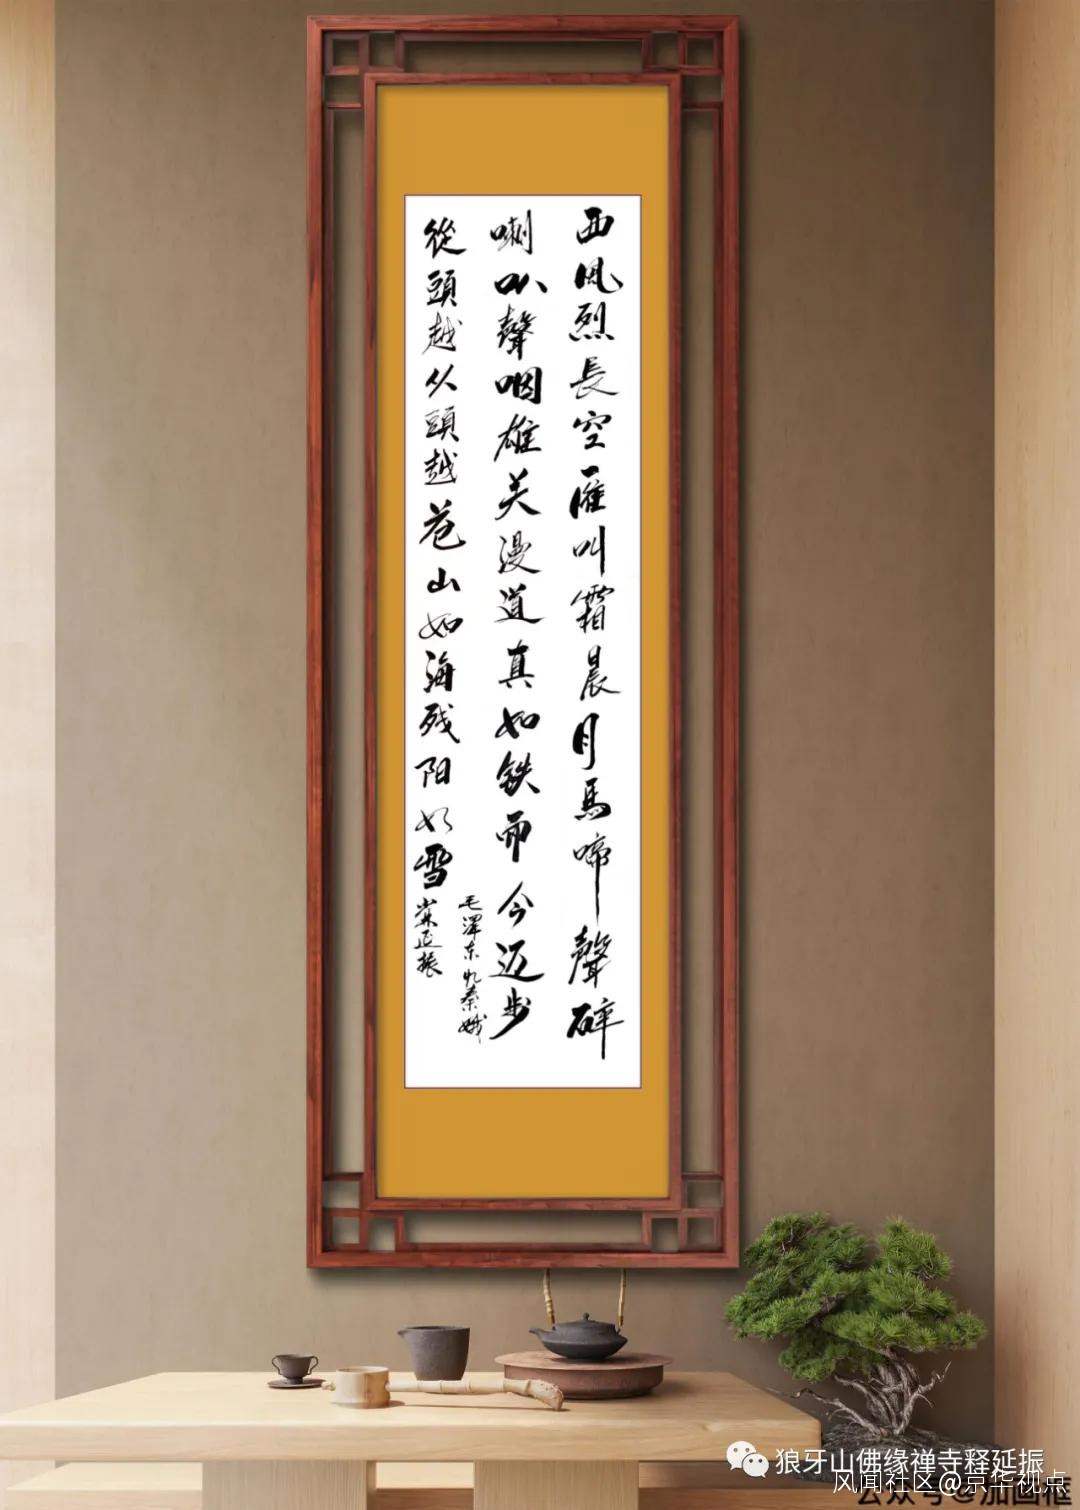 西风烈長空雁叫霜晨月馬啼聲碎
喇叭聲咽雄关漫道真如铁而今迈步
從頭越从頭越苍山如海残阳如雪
毛澤东忆秦娥
延振
狼牙山佛缘禅寺释延振
风闻社区@京华视点
公众号@油画框